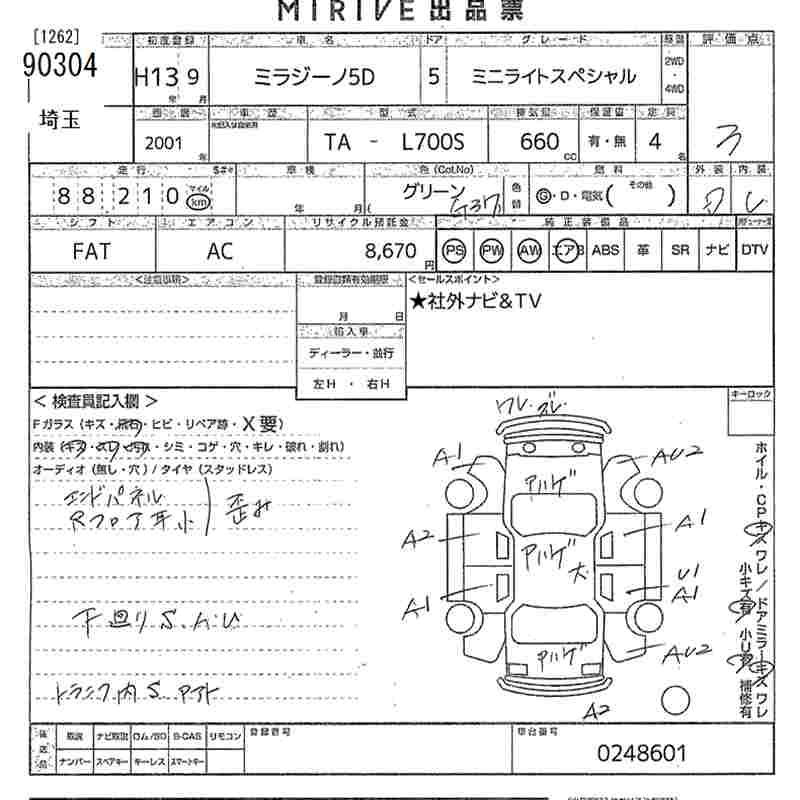 MIRIVE 出品票
[1262]
90304
埼玉
初度登録 車名 ドア グレード 評価点
H13 9 ミラジーノ5D 5 ミニライトスペシャル 2WD・4WD
年 月
車歴 型式 排気量 保証書 定員
2001 年 TA - L700S 660 CC 有・無 4 名 3
走行 車検 色(Col.No) 燃料 外装 内装
88210 マイル km 年 月( グリーン G37 色替 G・D・電気( その他 ) D
シフト エアコン リサイクル預託金 純正装備品
FAT AC 8,670 円 PS PW AW エアB ABS 革 SR ナビ DTV
<注意事項> 登録書類有効期限 <セールスポイント>
★社外ナビ&TV
月 日
輸入車
ディーラー・並行
左H ・ 右H
< 検査員記入欄 > キーロック
Fガラス (キズ・飛石・ヒビ・リペア跡・X要)
内装 (キズ・スレ・汚れ・シミ・コゲ・穴・キレ・破れ・割れ)
オーディオ (無し・穴) / タイヤ (スタッドレス)
エンドパネル
Rフロア耳小 歪み
下廻りS.ハU
トランク内S アト
ワレ・ズレ
A1 アハゲ AU2
A2 アハゲ 大 A1
A1 U1 A1
アハゲ AU2
A2
ホイル・CPキズワレ/ドアミラーキズワレ
小キズ有 小U有 補修有
後送品 取説 ナビ取説 ロム/SD B-CAS リモコン 登録番号 車台番号
ナンバー スペアキー キーレス スマートキー 0248601